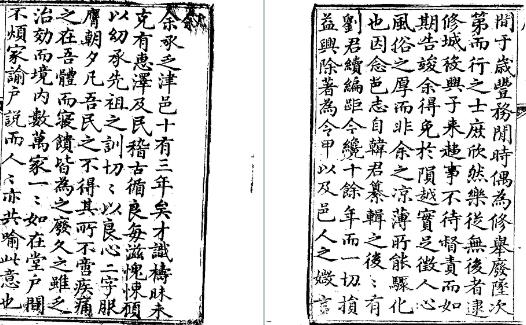 叙
余承乏津邑十有三年矣才識檮昧未
克有惠澤及民稽古循良每滋愧悚顧
以幼承先祖之訓切〻以良心二字服
膺朝夕凡吾民之不得其所不啻疾痛
之在吾體而寢饋皆為之廢久之雖乏
治効而境内數萬家一〻如在堂戶闥
不煩家諭戶説而人〻亦共喻此意也
間于歲豐務閒時偶為修舉廢墜次
第而行之士庶欣然樂從無後者逮
修城役興子來趨事不待督責而如
期告竣余得免於隕越實足徵人心
風俗之厚而非余之涼薄所能驅化
也因念邑志自韓君纂輯之後〻有
劉君續編距今纔十餘年而一切損
益興除著為令甲以及邑人之媺言